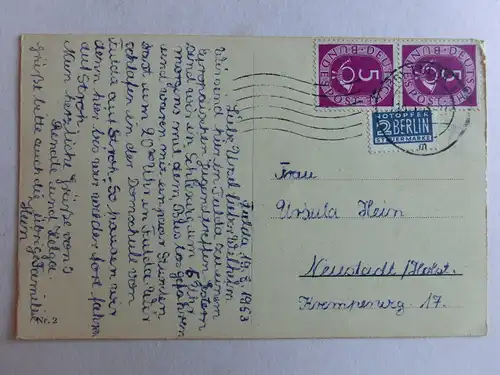 Fulda 19.8.1953
Liebe Ursel, lieber Wilhelm
Wir sind hier in Fulda zu einem
Europäischen Jugendtreffen. Gestern
morgens mit dem Bus losgefahren
sind wir in Schleswig um 5 Uhr
und waren mit ein paar Stunden
Rast um 20 00 Uhr in Fulda. Wir
schlafen in der Domschule von
Fulda auf Stroh. So pausen wir
denn hier bis wir wieder fort fahren
auf Stroh.
Nun herzliche Grüße von
Rendle und Helga.
Grüßt bitte auch die übrige Familie
Hein
DEUTSCHE BUNDESPOST
5
DEUTSCHE BUNDESPOST
5
NOTOPFER
2 BERLIN
STEUERMARKE
Frau
Ursula Hein
Neustadt/Holst.
Kremperweg 17.